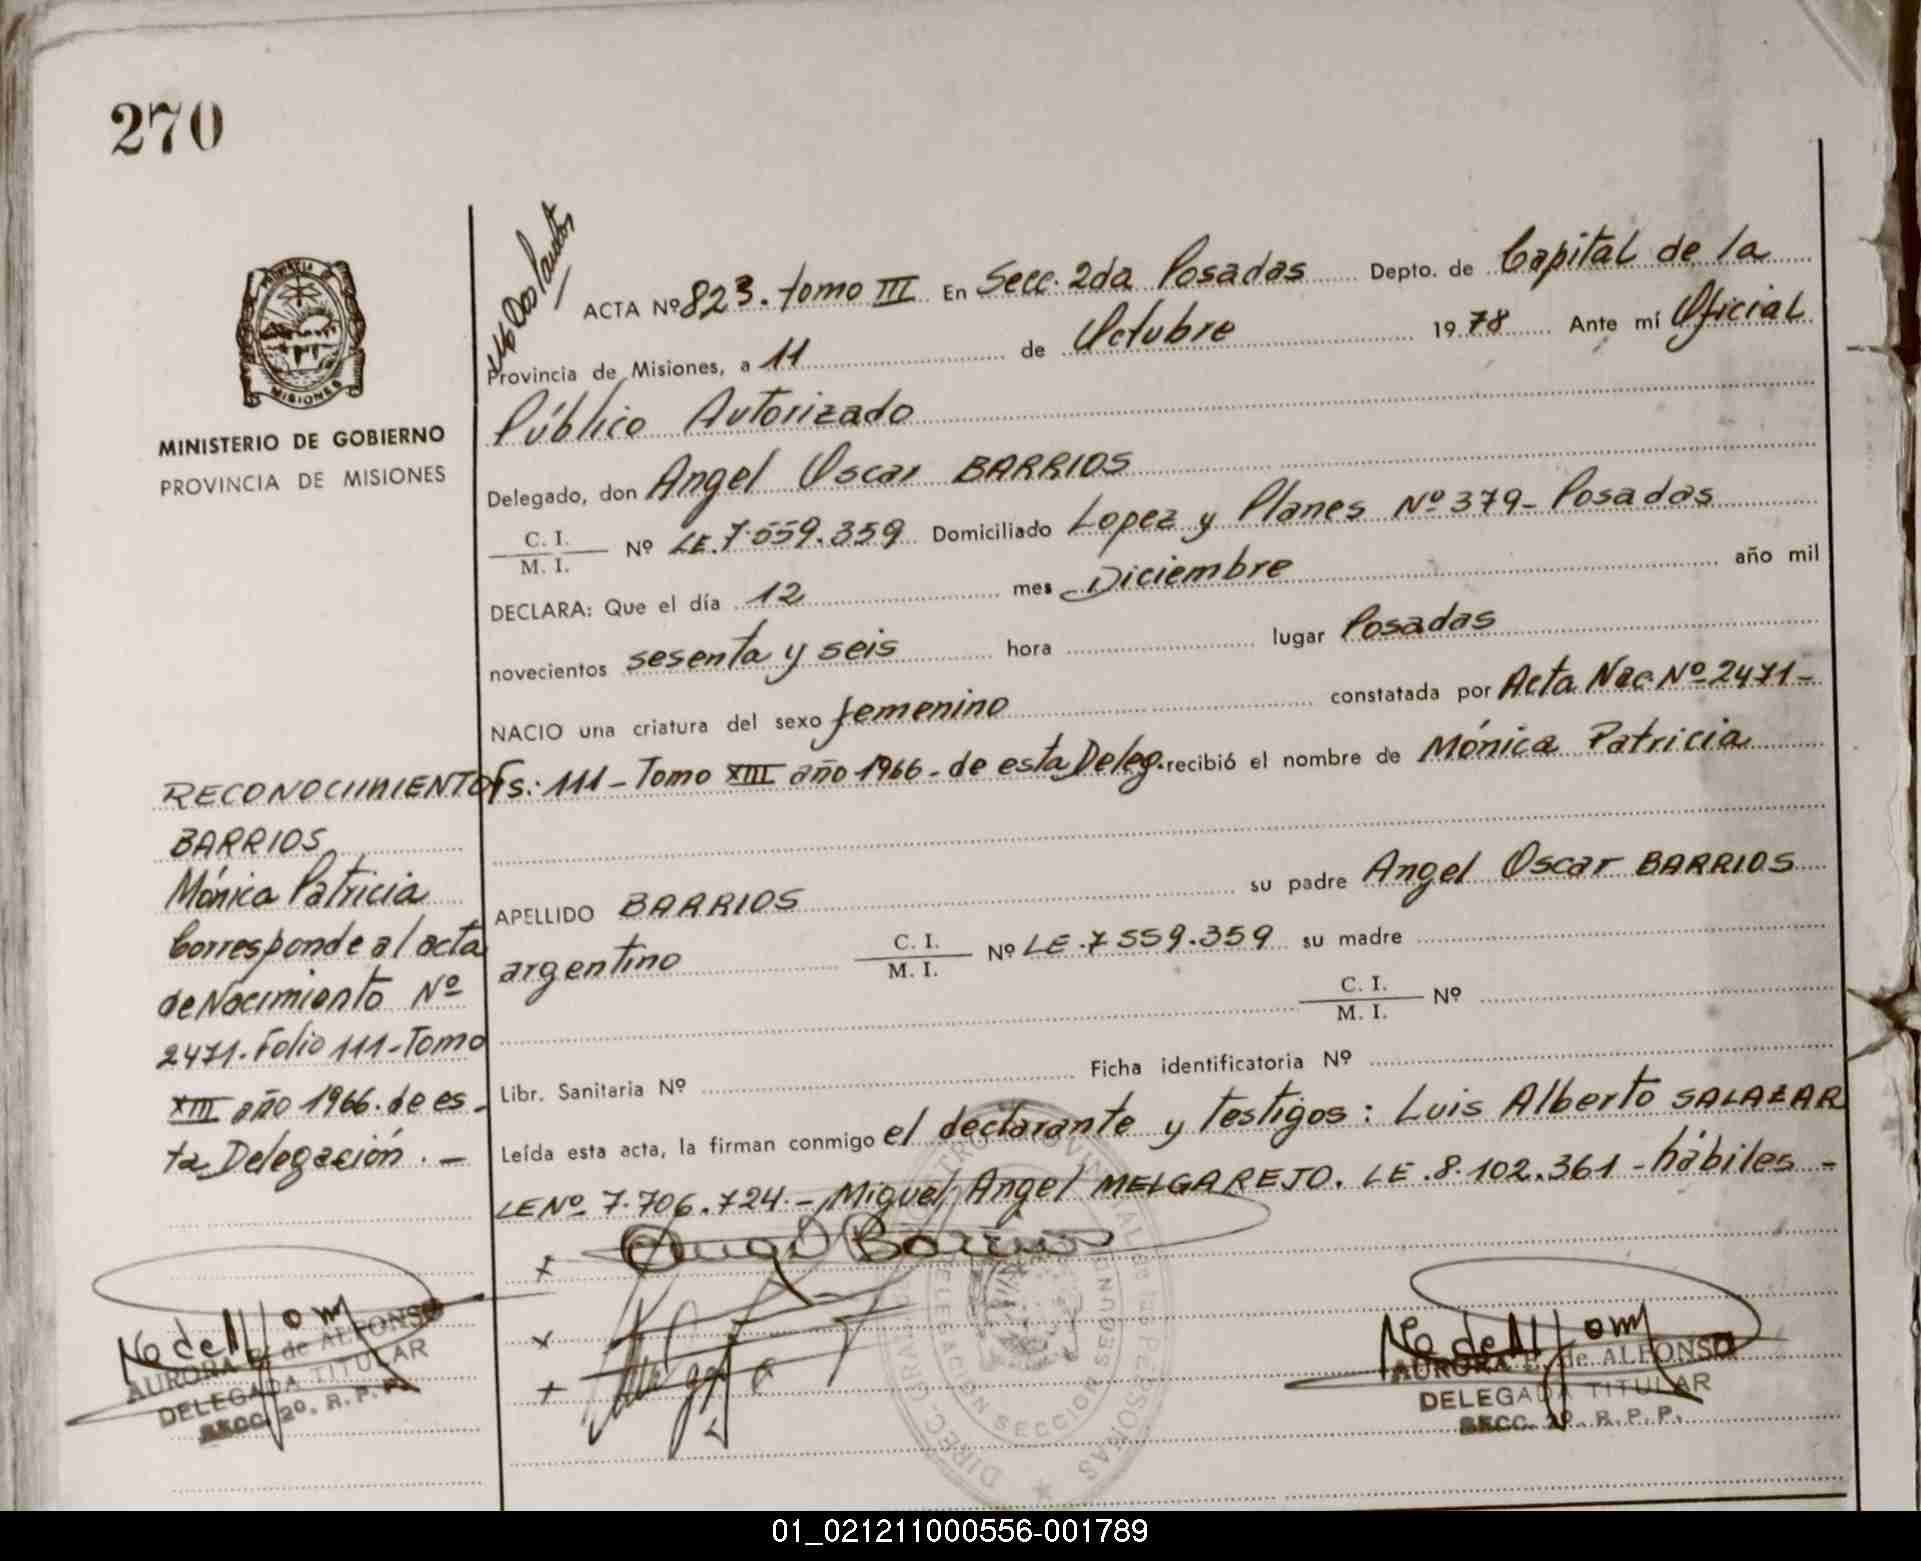 270
PROVINCIA DE
MISIONES
MINISTERIO DE GOBIERNO
PROVINCIA DE MISIONES
ACTA Nº 823. tomo III En Secc. 2da Posadas Depto. de Capital de la
Provincia de Misiones, a 11 de Octubre 1978 Ante mí Oficial
Público Autorizado
Delegado, don Angel Oscar BARRIOS
C. I.
M. I. Nº LE.7.559.359 Domiciliado Lopez y Planes Nº 379- Posadas
DECLARA: Que el día 12 mes Diciembre año mil
novecientos sesenta y seis hora lugar Posadas
NACIO una criatura del sexo femenino constatada por Acta Nac. Nº 2471-
Fs.: 111- Tomo XIII año 1966- de esta Deleg. recibió el nombre de Mónica Patricia
APELLIDO BARRIOS su padre Angel Oscar BARRIOS
argentino C. I.
M. I. Nº LE.7559.359 su madre
C. I.
M. I. Nº
Libr. Sanitaria Nº Ficha identificatoria Nº
Leída esta acta, la firman conmigo el declarante y testigos: Luis Alberto SALAZAR
LE Nº 7.706.724.- Miguel Angel MELGAREJO. LE.8.102.361 - hábiles -
RECONOCIMIENTO
BARRIOS
Mónica Patricia
Corresponde al acta
de Nacimiento Nº
2471- Folio 111- Tomo
XIII año 1966. de es-
ta Delegación. -
Angel Barrios
AURORA E. de ALFONSO
DELEGADA TITULAR
SECC. 2º. R. P. P.
AURORA E. de ALFONSO
DELEGADA TITULAR
SECC. 2º. R. P. P.
DELEGACION SECCION SEGUNDA
01_021211000556-001789